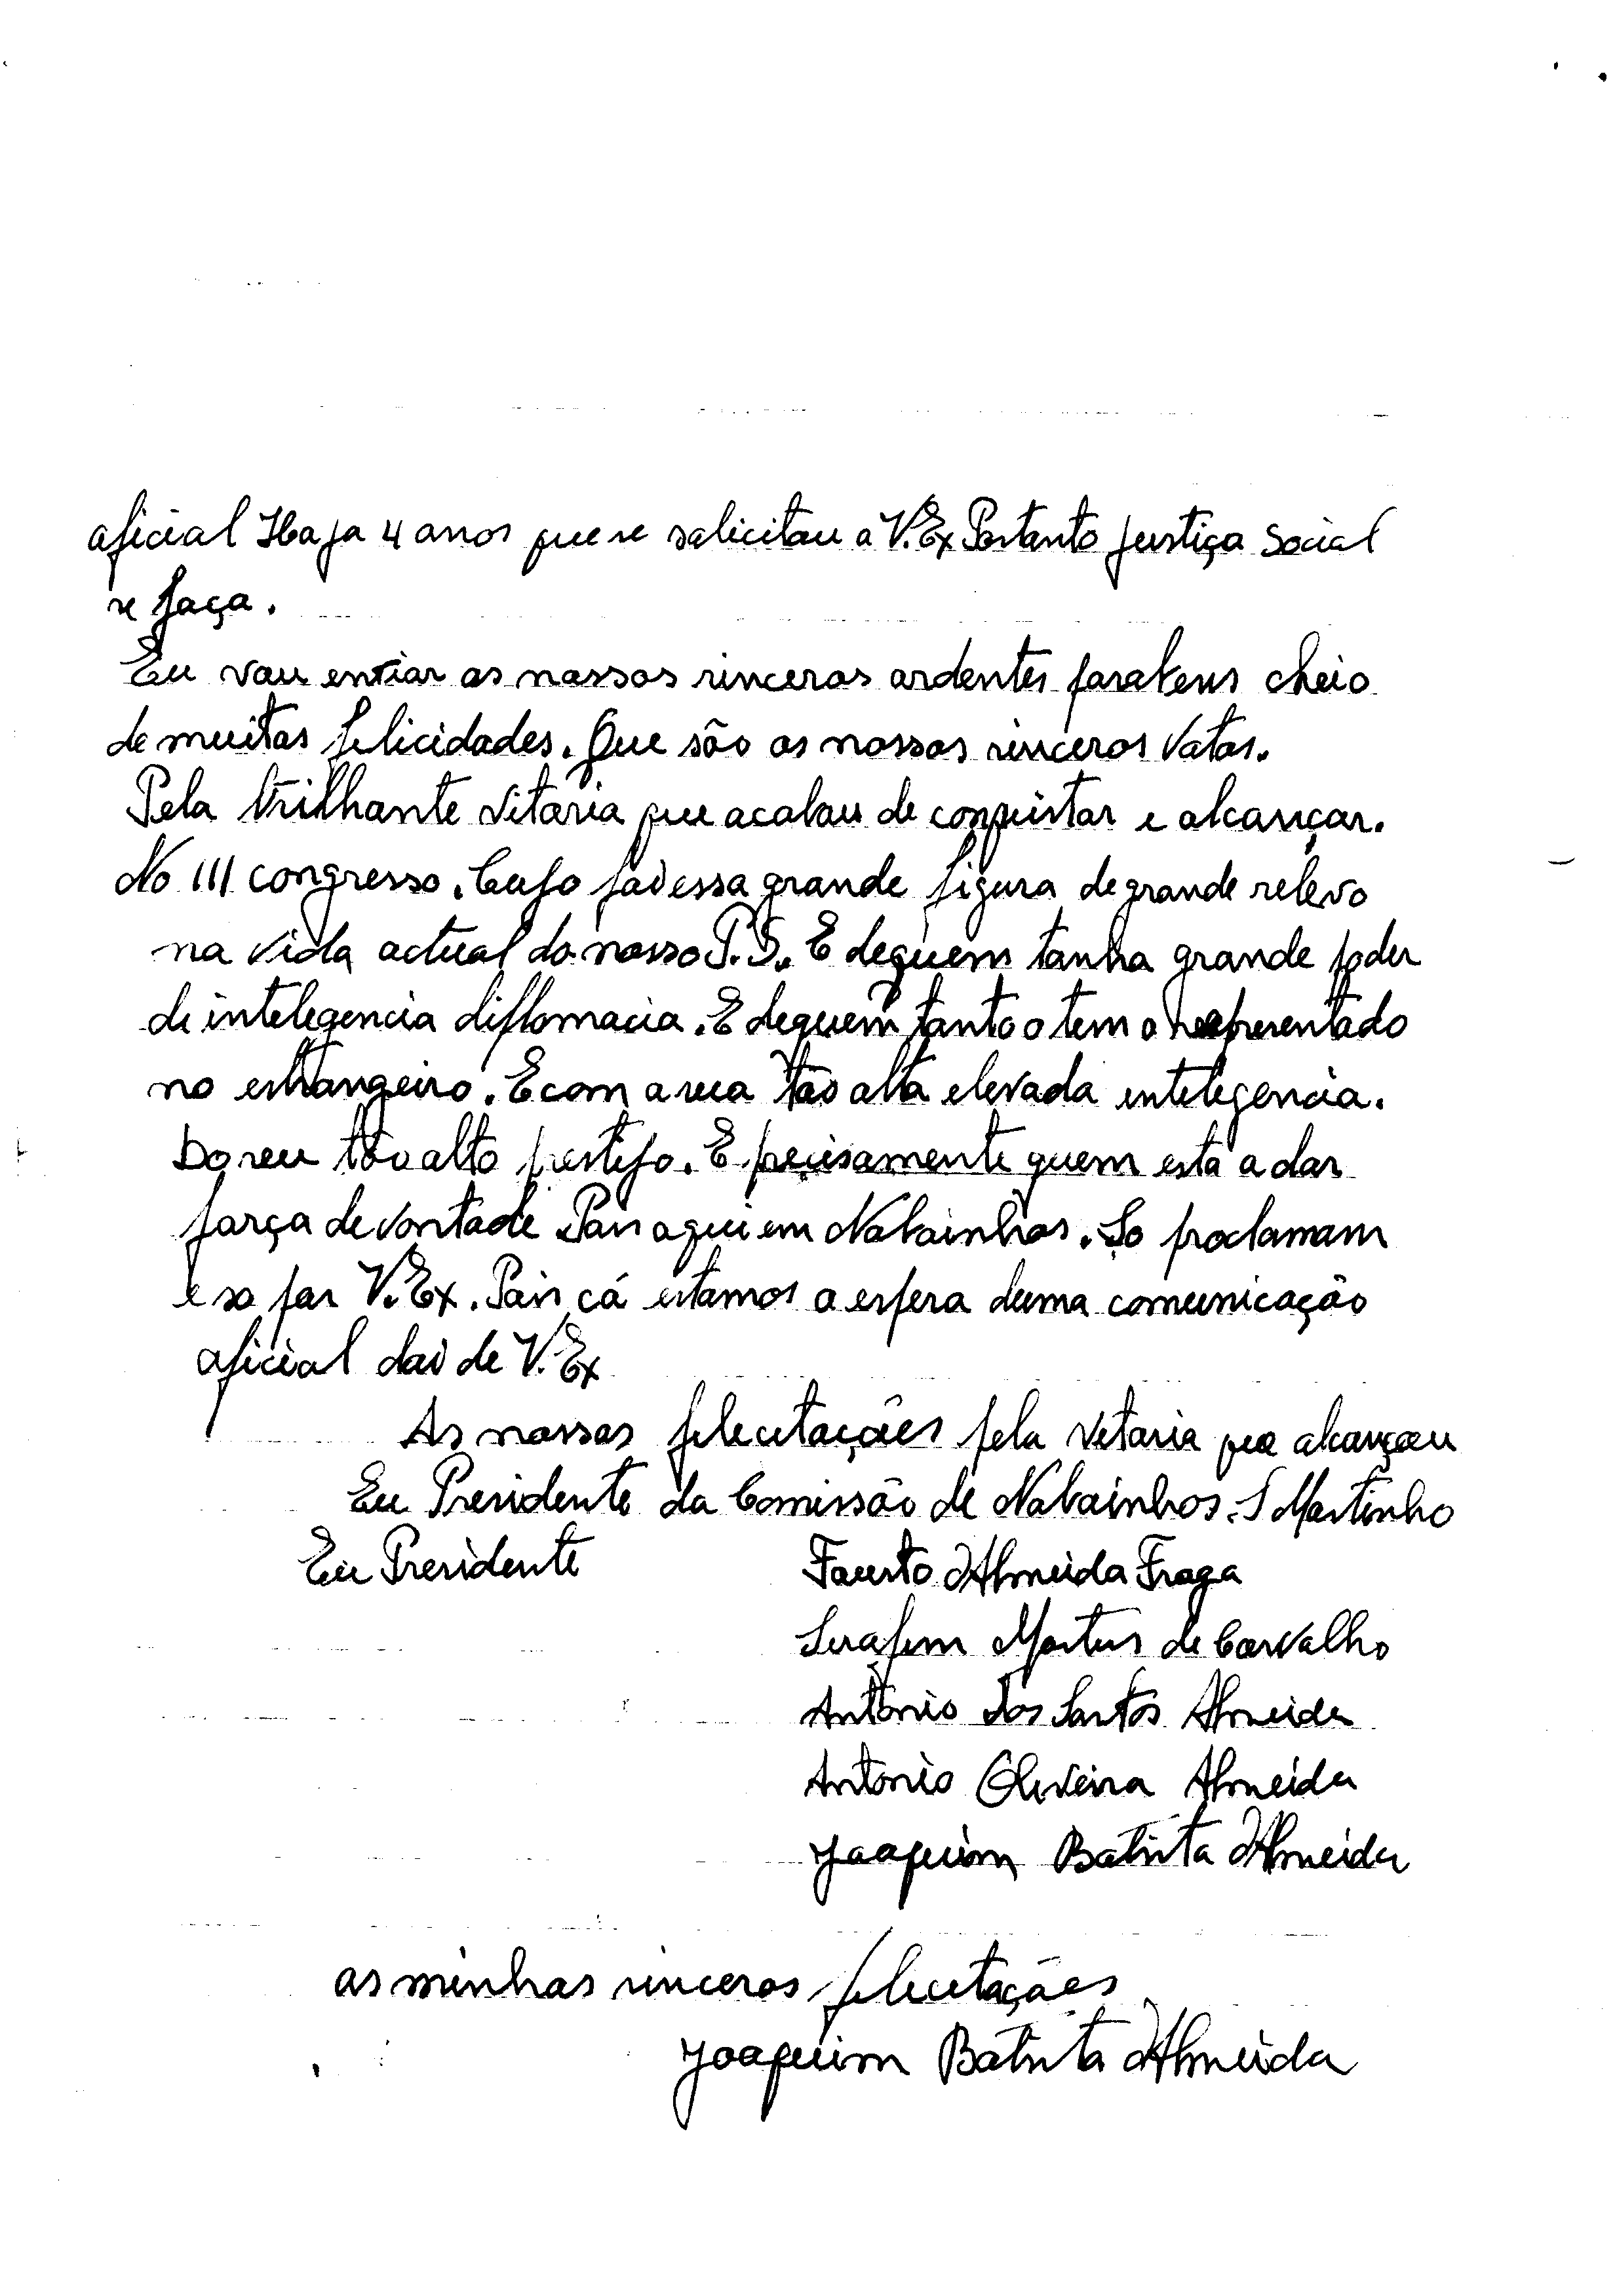 oficial Ha ja 4 anos que se solicitou a V. Ex Portanto justiça Social
se faça.
Eu vou enviar os nossos sinceros ardentes parabens cheio
de muitas felicidades. Que são os nossos sinceros Votos.
Pela brilhante Vitoria que acabou de conquistar e alcançar.
No III congresso. Cujo foi essa grande figura de grande relevo
na vida actual do nosso P.S. E de quem tanha grande poder
de intelegencia diplomacia. E de quem tanto o tem o representado
no estrangeiro. E com a sua tão alta elevada intelegencia.
Do seu tão alto prestijo. E precisamente quem esta a dar
força de vontade Pois aqui em Nabainhos. So proclamam
e so por V. Ex. Pois cá estamos a espera duma comunicação
oficial dai de V. Ex
As nossas felecitações pela Vetoria que alcançou
Eu Presidente da Comissão de Nabainhos. S Martinho
Eu Presidente Fausto d'Almeida Fraga
Serafim Martins de Carvalho
António dos Santos Almeida
Antonio Oliveira Almeida
Joaquim Batista d'Almeida
as minhas sinceras felecitações
Joaquim Batista d'Almeida